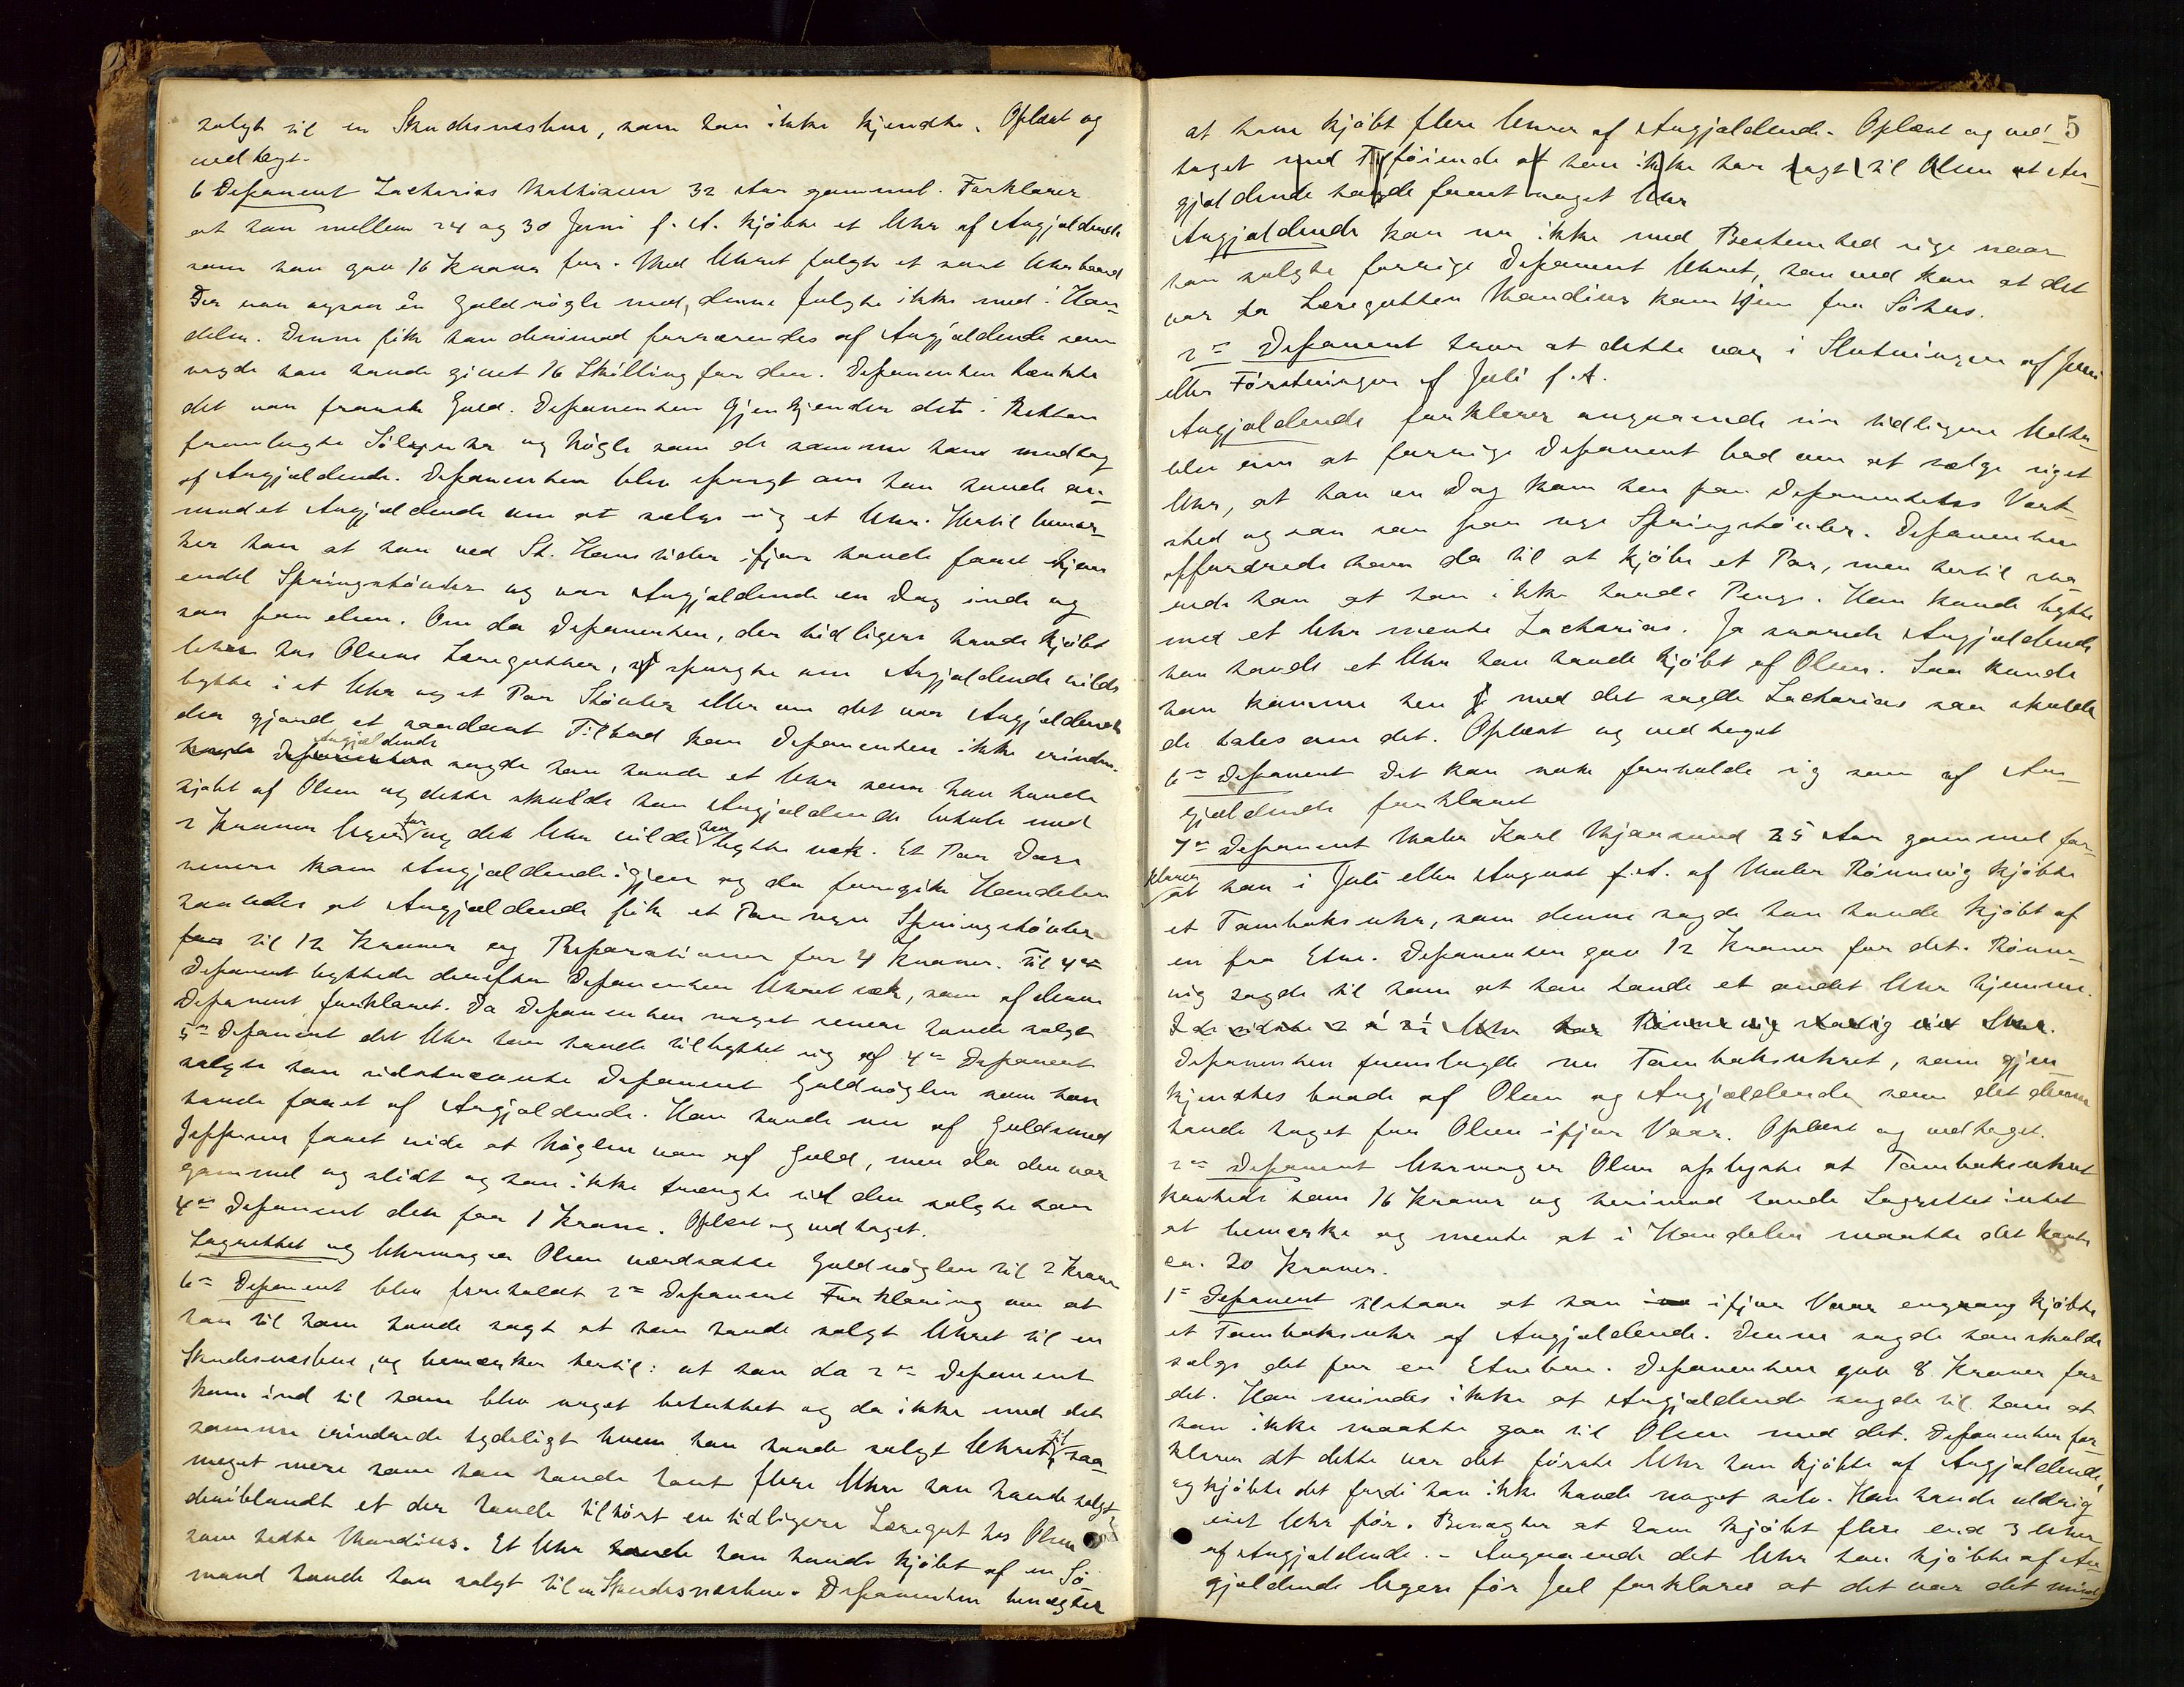 solgt til en Skudesnæsbue, som han ikke kjendte. Oplæst og
vedtaget.
6 Deponent Zacharias Mathiasen 32 Aar gammel. Forklarer
at han mellem 24 og 30 Juni f. A. kjøbte et Uhr af Angjældende
som han gav 16 Kroner for. Med Uhret fulgte et sort Uhrbaand
Der var ogsaa en Guldnøgle med, denne fulgte ikke med i Han-
delen. Denne fik han derimod forærendes af Angjældende som
sagde han havde givet 16 Skilling for den. Deponenten tænkte
det var fransk Guld. Deponenten gjenkjender det i Retten
fremlagte Sølvuhr og Nøgle som de samme han modtog
af Angjældende. Deponenten blev spurgt om han havde an-
modet Angjældende om at sælge sig et Uhr. Hertil bemær-
ker han at han ved St. Hans tider ifjor havde faaet hjem
endel Springstøvler og var Angjældende en Dag inde og
saa paa dem. Om da Deponenten, der tidligere havde kjøbt
Uhre hos Olsens Læregutter, spurgte om Angjældende vilde
bytte i et Uhr og et Par Støvler eller om det var Angjældende
der gjorde et saadant Tilbud kan Deponenten ikke erindre.
Angjældende
sagde han havde et Uhr som han havde
kjøbt af Olsen og dette skulde han Angjældende betale med
2 Kroner Ugen for og det Uhr vilde han bytte væk. Et Par Dage
senere kom Angjældende igjen og da foregik Handelen
saaledes at Angjældende fik et Par nye Springstøvler
for til 12 Kroner og Reparationer for 4 Kroner. Til 4de
Deponent byttede derefter Deponenten Uhret væk, som af denne
Deponent forklaret. Da Deponenten noget senere havde solgt
5te Deponent det Uhr han havde tilbyttet sig af 4de Deponent
solgte han sidstnævnte Deponent Guldnøglen som han
havde faaet af Angjældende. Han havde nu af Guldsmed
Jepsen faaet vide at Nøglen var af Guld, men da den var
gammel og slidt og han ikke trængte til den solgte han
4de Deponent den for 1 Krone. Oplæst og vedtaget.
Lagrettet og Uhrmager Olsen værdsatte Guldnøglen til 2 Kroner
6te Deponent blev foreholdt 2den Deponent Forklaring om at
han til ham havde sagt at han havde solgt Uhret til en
Skudesnæsbue, og bemærker hertil: at han da 2den Deponent
kom ind til ham blev noget betuttet og da ikke med det
samme erindrede tydeligt hvem han havde solgt Uhret til saa
meget mere som han havde havt flere Uhre han havde solgt
deriblandt et der havde tilhørt en tidligere Læregut hos Olsen
som hedte Mandius. Et Uhr havde han havde kjøbt af en Sø-
mand havde han solgt til en Skudesnæsbue. Deponenten benægter
5
at have kjøbt flere Uhre af Angjældende. Oplæst og ved-
taget med Tilføiende at han ikke har sagt til Olsen at An-
gjældende havde faaet noget Uhr
Angjældende kan nu ikke med Bestemthed sige naar
han solgte forrige Deponent Uhret, han ved kun at det
var da Læregutten Mandius kom hjem fra Søhus.
2den Deponent tror at dette var i Slutningen af Juni
eller Førstningen af Juli f. A.
Angjældende forklarer angaaende sin tidligere Udta-
lelse om at forrige Deponent bad om at sælge sig et
Uhr, at han en Dag kom hen paa Deponentens Værk-
sted og saa han paa nye Springstøvler. Deponenten
opfordrede ham da til at kjøbe et Par, men hertil sva-
rede han at han ikke havde Penge. Han kunde bytte
med et Uhr mente Zacharias. Ja svarede Angjældende
han havde et Uhr han havde kjøbt af Olsen. Saa kunde
han komme hen med det sagde Zacharias saa skulde
de tales om det. Oplæst og vedtaget
6te Deponent Det kan nok forholde sig som af An-
gjældende forklaret
7de Deponent Maler Karl Mjaasund 25 Aar gammel for-
klarer
at han i Juli eller August f. A. af Maler Rønnevig kjøbte
et Tombaksuhr, som denne sagde han havde kjøbt af
en fra Etne. Deponenten gav 12 Kroner for det. Rønne-
vig sagde til ham at han havde et andet Uhr hjemme.
Deponenten fremlagde nu Tombaksuhret, som gjen-
kjendtes baade af Olsen og Angjældende som det denne
havde taget fra Olsen ifjor Vaar. Oplæst og vedtaget.
2den Deponent Uhrmager Olsen oplyste at Tombaksuhret
kostede ham 16 Kroner og herimod havde Lagrettet intet
at bemærke og mente at i Handelen maatte det koste
ca. 20 Kroner.
1ste Deponent tilstaar at han ifjor Vaar engang kjøbte
et Tombaksuhr af Angjældende. Denne sagde han skulde
sælge det for en Etnebue. Deponenten gav 8 Kroner for
det. Han mindes ikke at Angjældende sagde til ham at
han ikke maatte gaa til Olsen med det. Deponenten for-
klarer at dette var det første Uhr han kjøbte af Angjældende,
og kjøbte det fordi han ikke havde noget selv. Han havde aldrig
eiet Uhr før. Benægter at have kjøbt flere end 3 Uhre
af Angjældende. - Angaaende det Uhr han kjøbte af An-
gjældende Ugen før Jul forklarer at det var det mind-